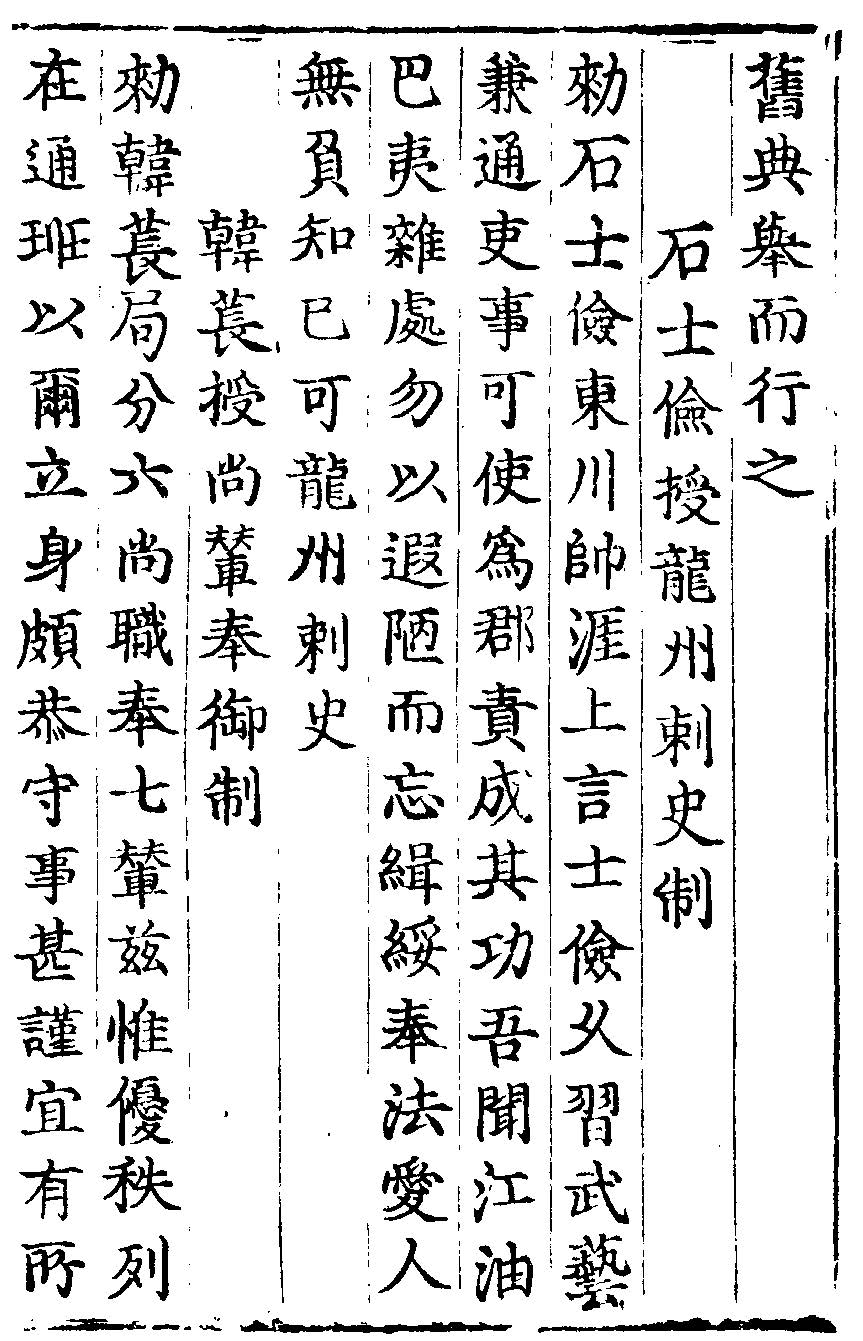 舊典舉而行之
石士儉授龍州刺史制
勑石士儉東川帥涯上言士儉乆習武藝
兼通吏事可使爲郡責成其功吾聞江油
巴夷雜處勿以遐陋而忘緝綏奉法愛人
無負知巳可龍州刺史
韓萇授尚輦奉御制
勑韓萇局分六尚職奉七輦兹惟優秩列
在通班以爾立身頗恭守事甚謹宜有所